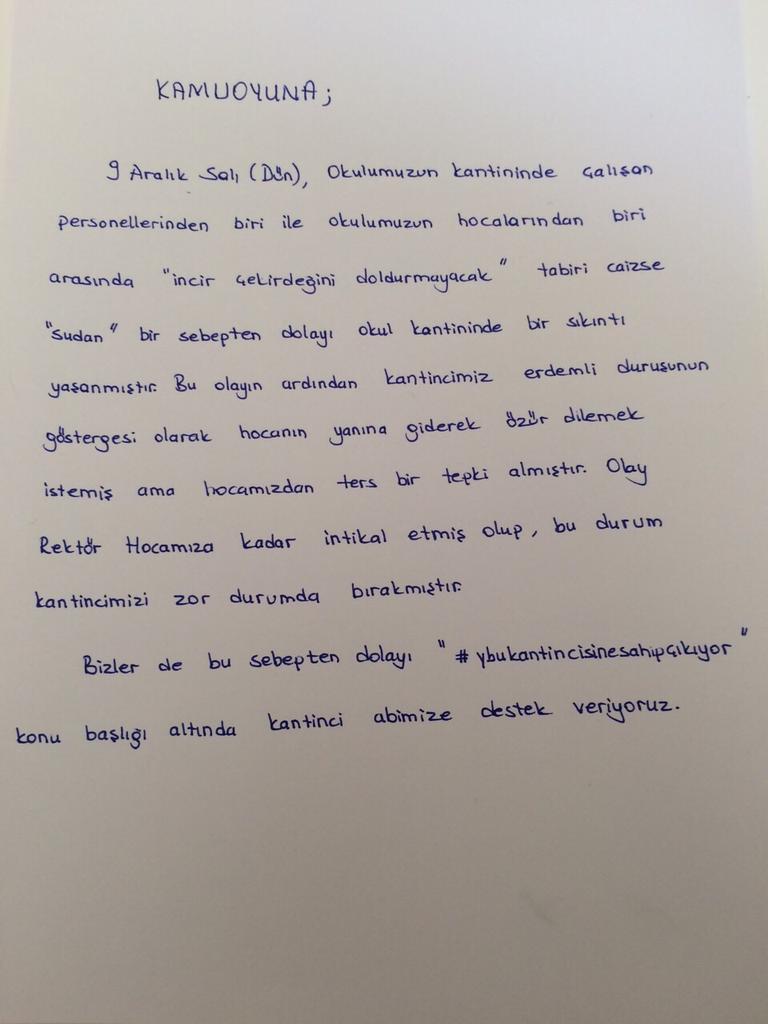 KAMUOYUNA;
9 Aralık Salı (Dün), Okulumuzun kantininde çalışan
personellerinden biri ile okulumuzun hocalarından biri
arasında "incir çekirdeğini doldurmayacak" tabiri caizse
"sudan" bir sebepten dolayı okul kantininde bir sıkıntı
yaşanmıştır. Bu olayın ardından kantincimiz erdemli duruşunun
göstergesi olarak hocanın yanına giderek özür dilemek
istemiş ama hocamızdan ters bir tepki almıştır. Olay
Rektör Hocamıza kadar intikal etmiş olup, bu durum
kantincimizi zor durumda bırakmıştır.
Bizler de bu sebepten dolayı "#ybukantincisinesahipçıkıyor"
konu başlığı altında kantinci abimize destek veriyoruz.